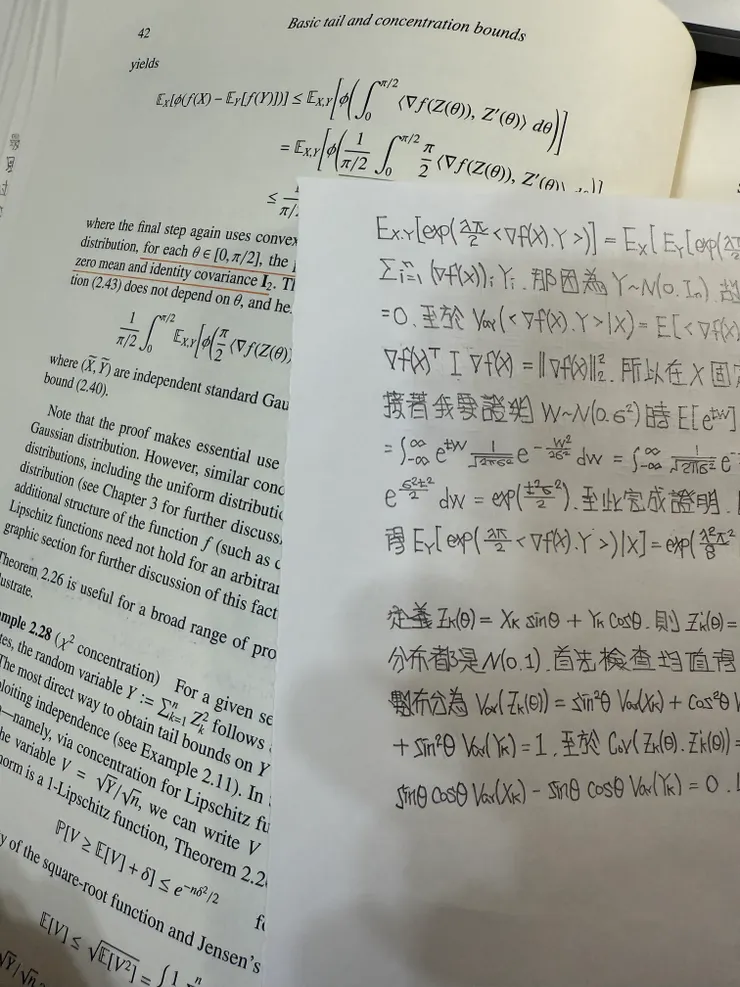 42
Basic tail and concentration bounds
yields
𝔼_{X,Y}[ϕ(f(X) − 𝔼_Y[f(Y)])] ≤ 𝔼_{X,Y}[ϕ(∫_0^{π/2} ⟨∇f(Z(θ)), Z′(θ)⟩ dθ)]
= 𝔼_{X,Y}[ϕ(1/(π/2) ∫_0^{π/2} π/2 ⟨∇f(Z(θ)), Z′(θ)⟩
≤ 1/(π/
where the final step again uses convex
distribution, for each θ ∈ [0, π/2], the
zero mean and identity covariance I₂. T
tion (2.43) does not depend on θ, and he
1/(π/2) ∫_0^{π/2} 𝔼_{X,Y}[ϕ(π/2 ⟨∇f(Z(θ))
where (X̃, Ỹ) are independent standard Gau
bound (2.40).
Note that the proof makes essential use
Gaussian distribution. However, similar conc
distributions, including the uniform distributio
distribution (see Chapter 3 for further discuss
additional structure of the function f (such as c
Lipschitz functions need not hold for an arbitrar
graphic section for further discussion of this fact
Theorem 2.26 is useful for a broad range of pro
lustrate.
mple 2.28 (χ² concentration) For a given se
tes, the random variable Y := ∑_{k=1}^n Z_k² follows
The most direct way to obtain tail bounds on Y
ploiting independence (see Example 2.11). In
—namely, via concentration for Lipschitz fu
he variable V = √Y/√n, we can write V
norm is a 1-Lipschitz function, Theorem 2.2
ℙ[V ≥ 𝔼[V] + δ] ≤ e^{−nδ²/2} f
y of the square-root function and Jensen's
𝔼[V] ≤ √𝔼[V²] = {1 n
√Y/√n
E_{X.Y}[exp(λπ/2 <∇f(X).Y>)] = E_X[E_Y[exp(λπ/2
∑_{i=1}^n (∇f(X))_i Y_i. 那因為 Y~N(0.I_n). 故
=0. 至於 Var(<∇f(X).Y>|X) = E[<∇f(X)
∇f(X)^T I ∇f(X) = ‖∇f(X)‖₂². 所以在 X 固定
接著我要證明 W~N(0.σ²) 時 E[e^{tW}]
= ∫_{-∞}^{∞} e^{tw} 1/√(2πσ²) e^{-w²/2σ²} dw = ∫_{-∞}^{∞} 1/√(2πσ²) e^-
e^{σ²t²/2} dw = exp(t²σ²/2). 至此完成證明.
得 E_Y[exp(λπ/2 <∇f(X).Y>)|X] = exp(λ²π²/8
定義 Z_K(θ) = X_K sinθ + Y_K cosθ. 則 Z_K'(θ) =
分布都是 N(0.1). 首先檢查均值得
數布分為 Var(Z_K(θ)) = sin²θ Var(X_K) + cos²θ V
+ sin²θ Var(Y_K) = 1. 至於 Cov(Z_K(θ).Z_K'(θ)) =
sinθ cosθ Var(X_K) − sinθ cosθ Var(Y_K) = 0.